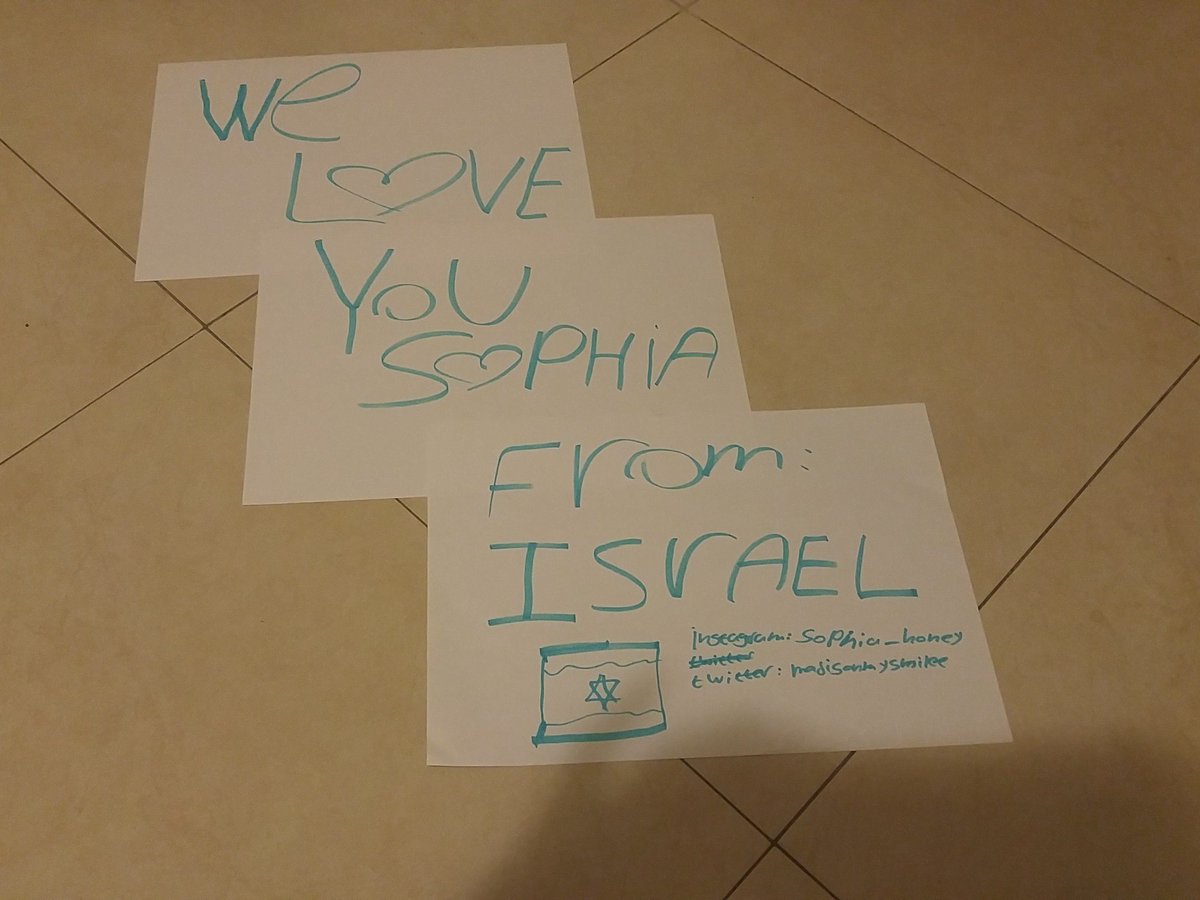 We
LOVE
YOU
SOPHIA
From:
ISrAEL
instagram: Sophia_honey
twitter
twitter: madisonmysmilee